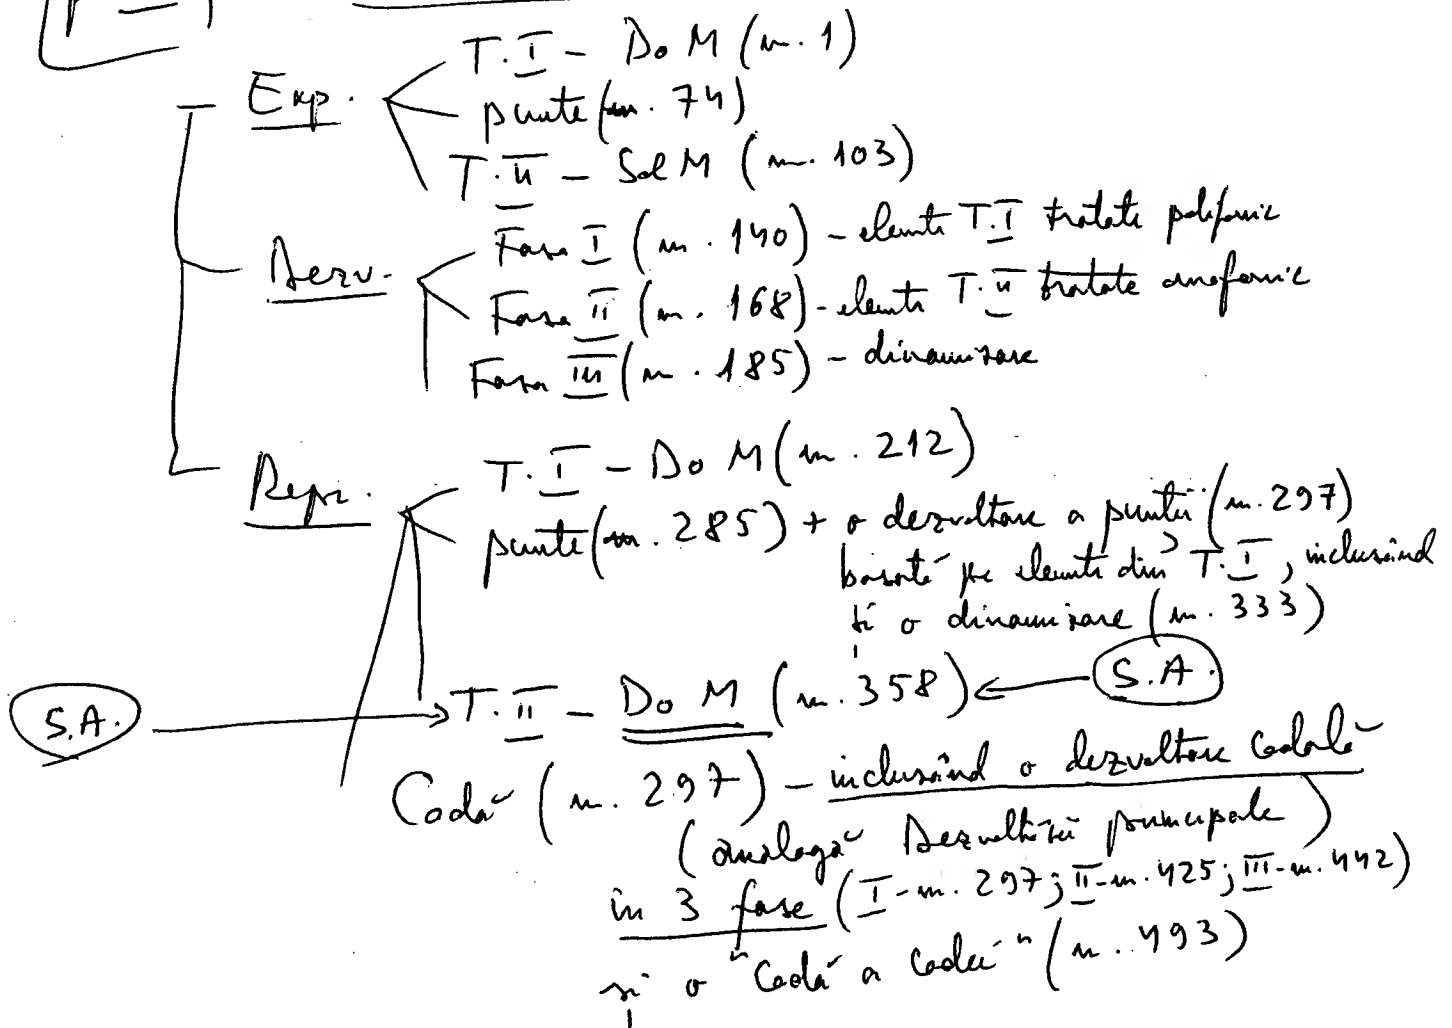 Exp.
T.I - Do M (m. 1)
punte (m. 74)
T.II - Sol M (m. 103)
Dezv.
Faza I (m. 140) - elemente T.I tratate polifonic
Faza II (m. 168) - elemente T.II tratate omofonic
Faza III (m. 185) - dinamizare
Repr.
T.I - Do M (m. 212)
punte (m. 285) + o dezvoltare a punții (m. 297)
bazată pe elemente din T.I, incluzând
și o dinamizare (m. 333)
S.A.
S.A.
T.II - Do M (m. 358)
Codă (m. 297) - incluzând o dezvoltare codală
(analogă Dezvoltării principale)
în 3 faze (I - m. 297; II - m. 425; III - m. 442)
și o "Codă a codei" (m. 493)